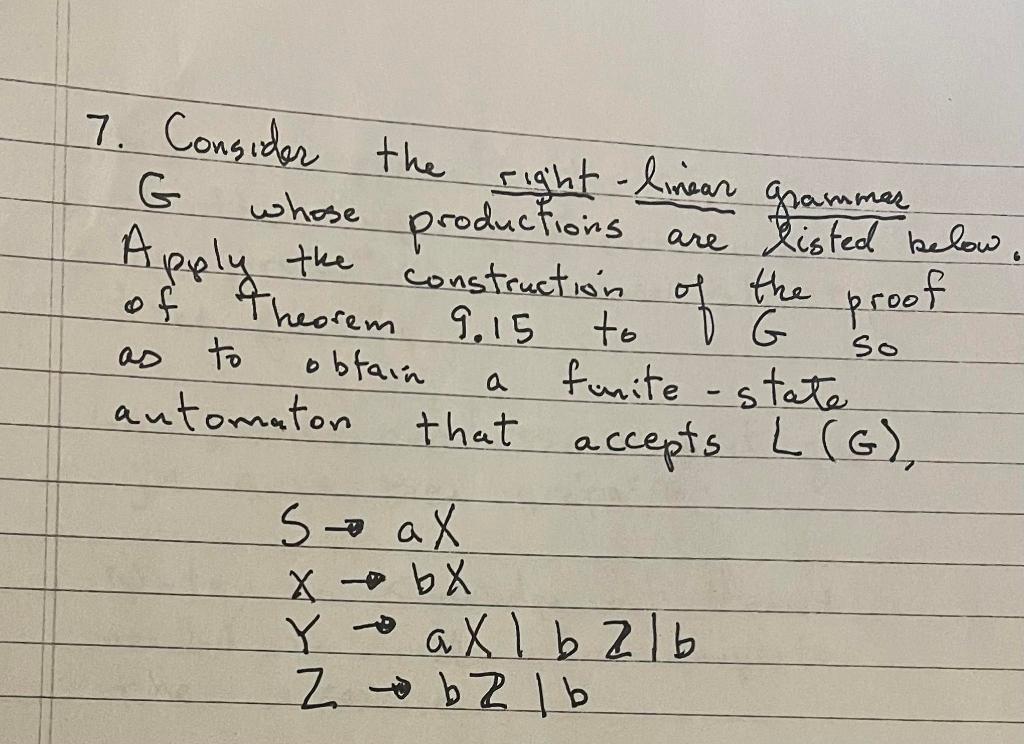 7. Consider the right-linear grammar
G whose productions are listed below.
Apply the construction of the proof
of Theorem 9.15 to G so
as to obtain a finite-state
automaton that accepts L(G),
S → aX
X → bX
Y → aX | bZ | b
Z → bZ | b